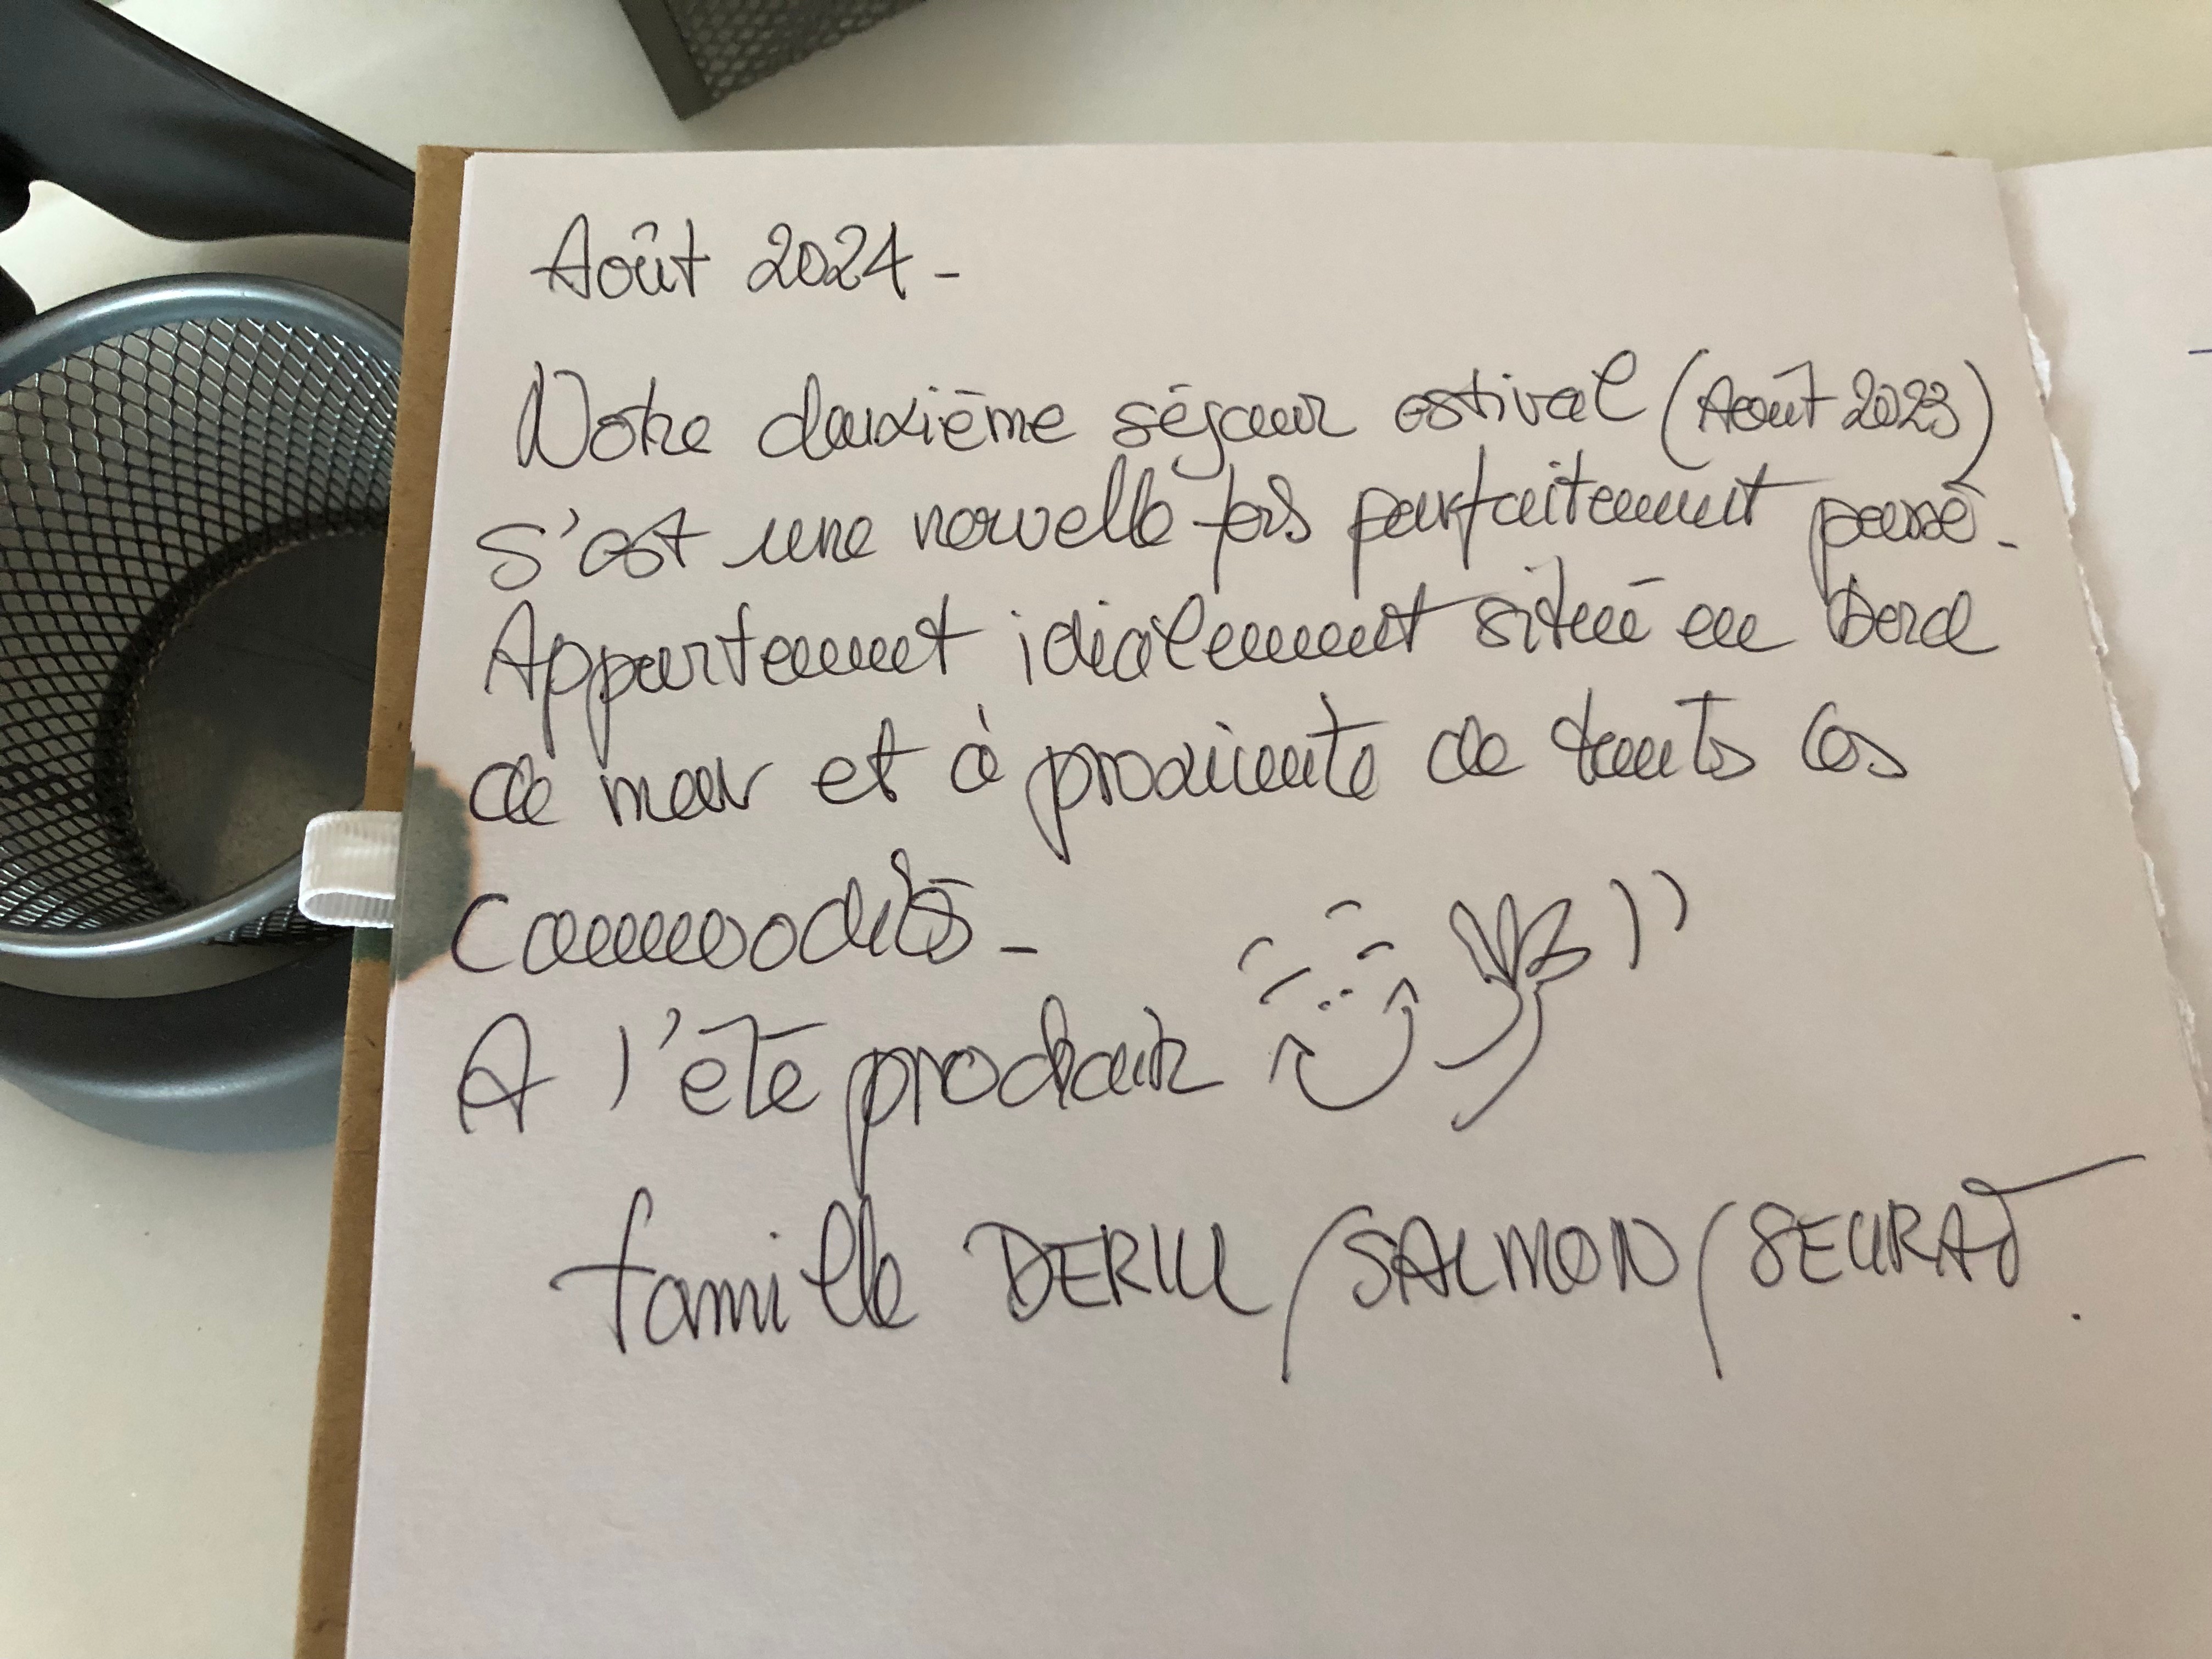 Août 2024 -
Notre deuxième séjour estival (Août 2023)
s'est une nouvelle fois parfaitement passé.
Appartement idéalement situé en bord
de mer et à proximité de toutes les
commodités -
A l'été prochain
famille DERIU / SALMON / SEURAT.